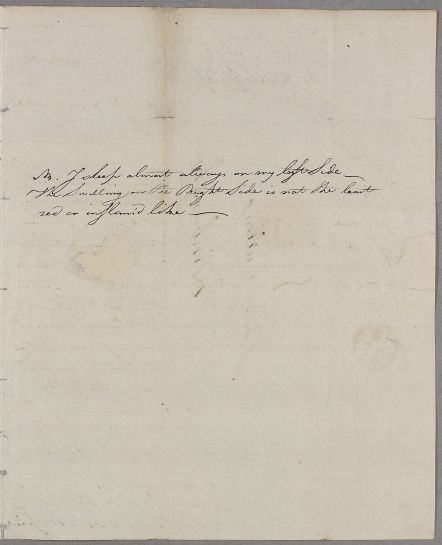 I sleep almost always on my left Side —
The Swelling on the Right Side is not the least
red or inflam'd like —